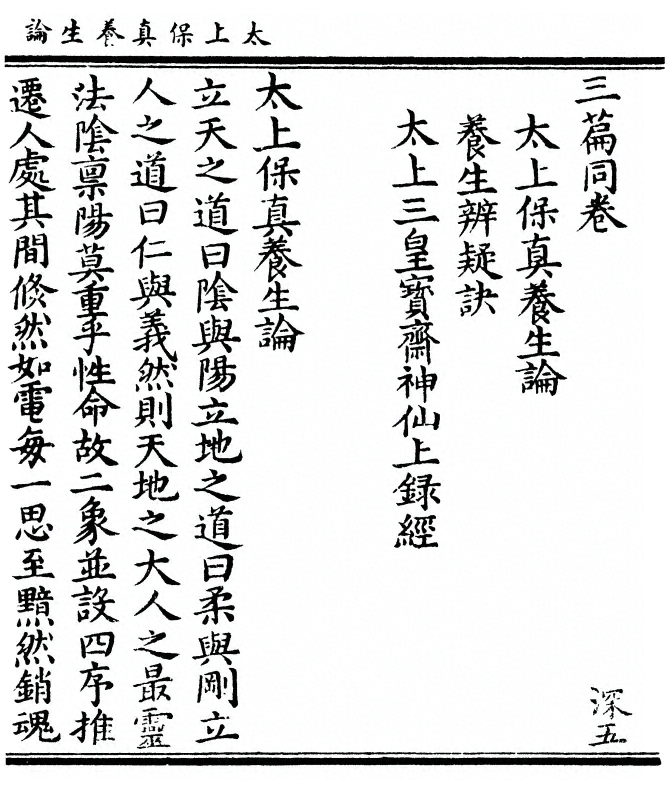 太上保真養生論
三篇同卷
深五
太上保真養生論
養生辨疑訣
太上三皇寶齋神仙上録經
太上保真養生論
立天之道曰陰與陽立地之道曰柔與剛立
人之道曰仁與義然則天地之大人之最靈
法陰禀陽莫重乎性命故二象並設四序推
遷人處其間倐然如電每一思至黯然銷魂